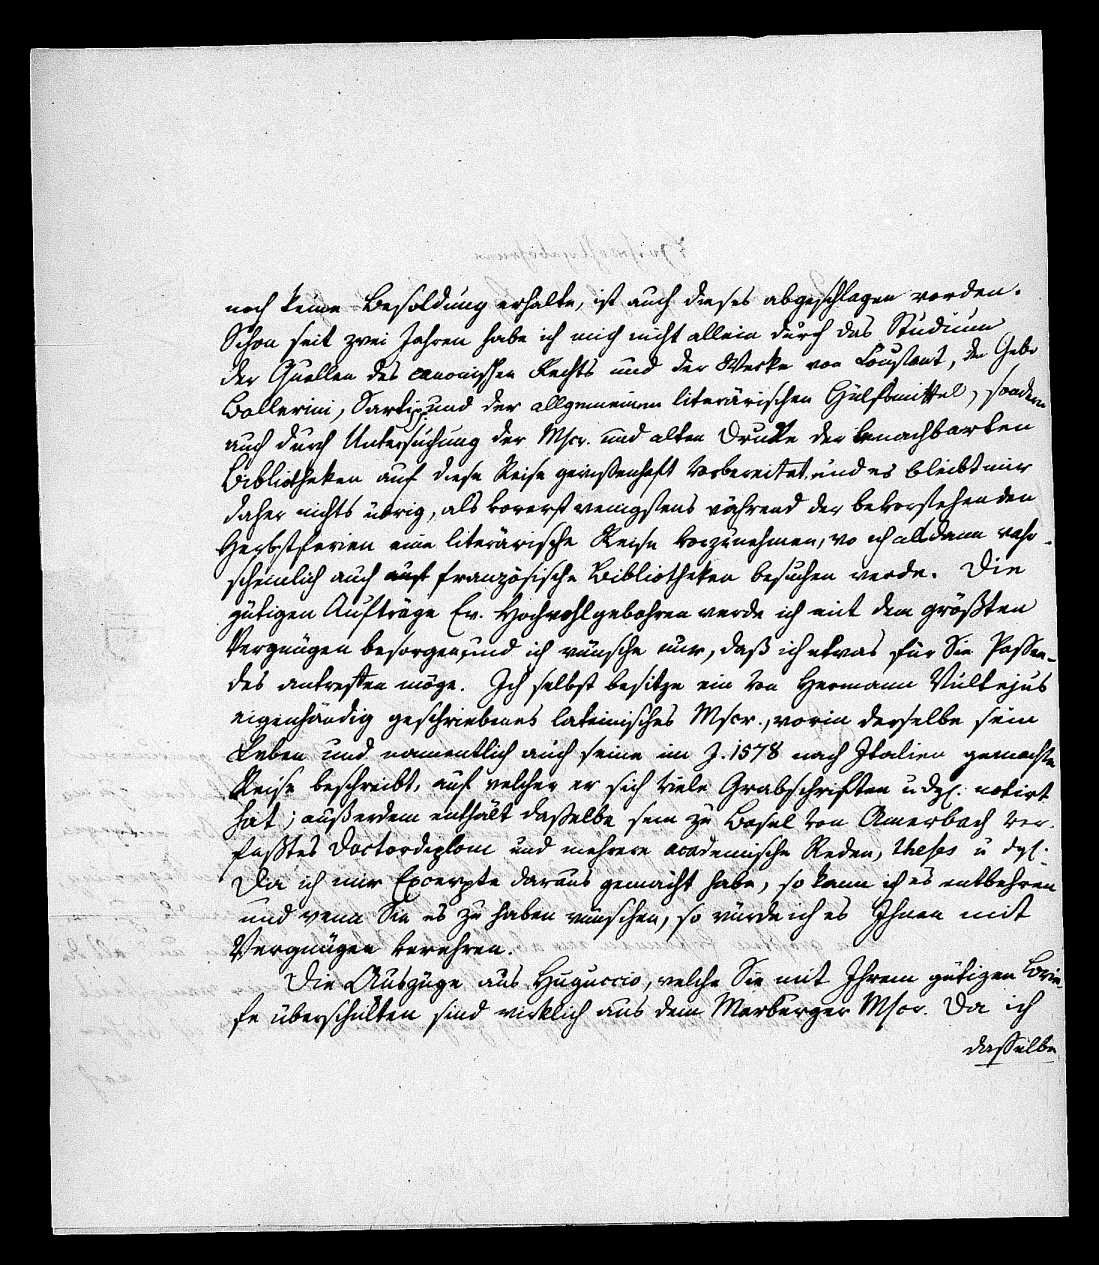 noch keine Besoldung erhalte, ist auch dieses abgeschlagen worden.
Schon seit zwei Jahren habe ich mich nicht allein durch das Studium
der Quellen des canonischen Rechts und der Werke von Coustant, der Gebr
Ballerini, Sarti, und der allgemeinen literärischen Hülfsmittel, sondern
auch durch Untersuchung der Mscr. und alten Drucke der benachbarten
Bibliotheken auf diese Reise gewissenhaft vorbereitet, und es bleibt mir
daher nichts übrig, als vorerst wenigstens während der bevorstehenden
Herbstferien eine literärische Reise vorzunehmen, wo ich alsdann wahr-
scheinlich auch französische Bibliotheken besuchen werde. Die
gütigen Aufträge Ew. Hochwohlgebohren werde ich mit dem größten
Vergnügen besorgen, und ich wünsche nur, daß ich etwas für Sie Passen-
des antreffen möge. Ich selbst besitze ein von Hermann Vultejus
eigenhändig geschriebenes lateinisches Mscr., worin derselbe sein
Leben und namentlich auch seine im J. 1578 nach Italien gemachte
Reise beschreibt, auf welcher er sich viele Grabschriften u. dgl. notirt
hat; außerdem enthält dasselbe sein zu Basel von Amerbach ver-
faßtes Doctordiplom und mehrere academische Reden, theses u dgl.
Da ich mir Excerpte daraus gemacht habe, so kann ich es entbehren
und wenn Sie es zu haben wünschen, so würde ich es Ihnen mit
Vergnügen verehren.
Die Auszüge aus Huguccio, welche Sie mit Ihrem gütigen Brie-
fe überschickten sind wirklich aus dem Marburger Mscr. Da ich
dasselbe